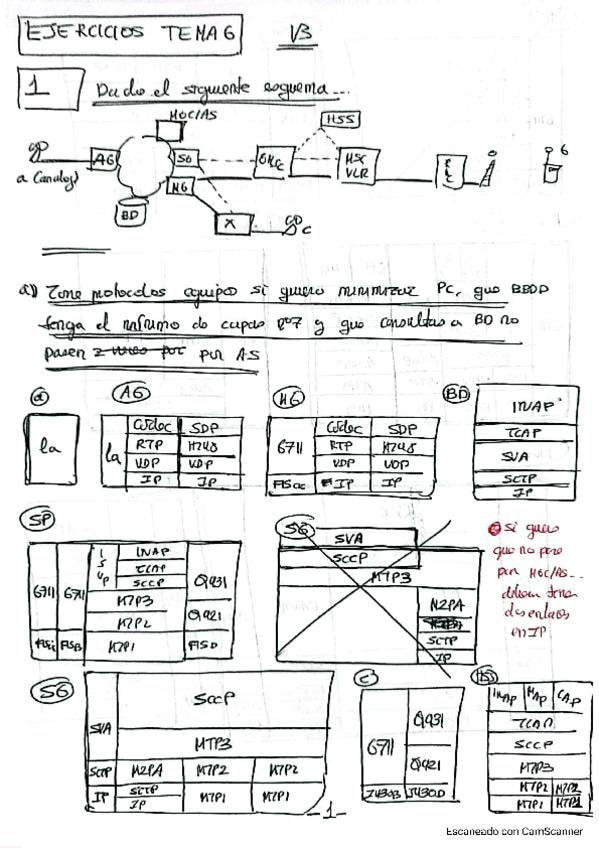 EJERCICIOS TEMA 6 1/3
1 Dado el siguiente esquema...
MGC/AS
HSS
AG
SG
GMSC
MSC
VLR
G
a (analog)
MG
BD
X
C
a) Zone protocolos equipos si quiero minimizar PC, que BBDD
tenga el mínimo de capas nº7 y que consultas a BD no
pasen por AS
a AG MG BD
la
la Codec SDP
RTP H248
UDP UDP
IP IP
G711 Codec SDP
RTP H248
UDP UDP
IP IP
INAP
TCAP
SUA
SCTP
IP
SP
G711 G711 ISUP INAP Q931
TCAP
SCCP
MTP3
MTP2 Q921
MTP1 FISD
SG
SUA
SCCP
MTP3
M2PA
SCTP
IP
si quiero
que no pase
por MGC/AS...
en IP
SG
SUA SCCP
MTP3
SCTP M2PA MTP2 MTP2
IP SCTP MTP1 MTP1
IP
C
G711 Q931
Q921
I430B I430D
INAP MAP CAP
TCAP
SCCP
MTP3
MTP2 MTP2
MTP1 MTP1
-1-
Escaneado con CamScanner